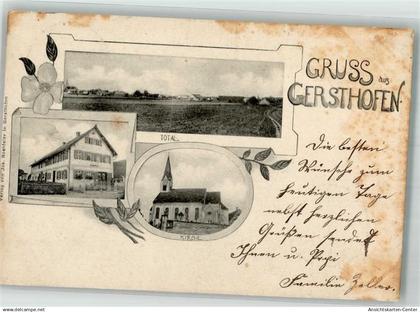 GRUSS aus
GERSTHOFEN.
TOTAL.
KIRCHE.
Die besten
Wünsche zum
heutigen Tage
nebst herzlichen
Grüßen sendet
Ihnen u. Papi
Familie Zeller.
Verlag von Jos. in Gersthofen
Ansichtskarten-Center